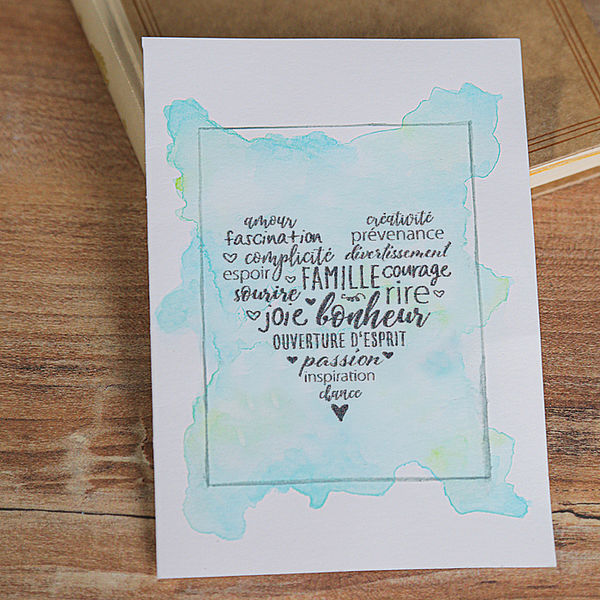 amour créativité
fascination prévenance
complicité divertissement
espoir FAMILLE courage
sourire rire
joie bonheur
OUVERTURE D'ESPRIT
passion
inspiration
chance